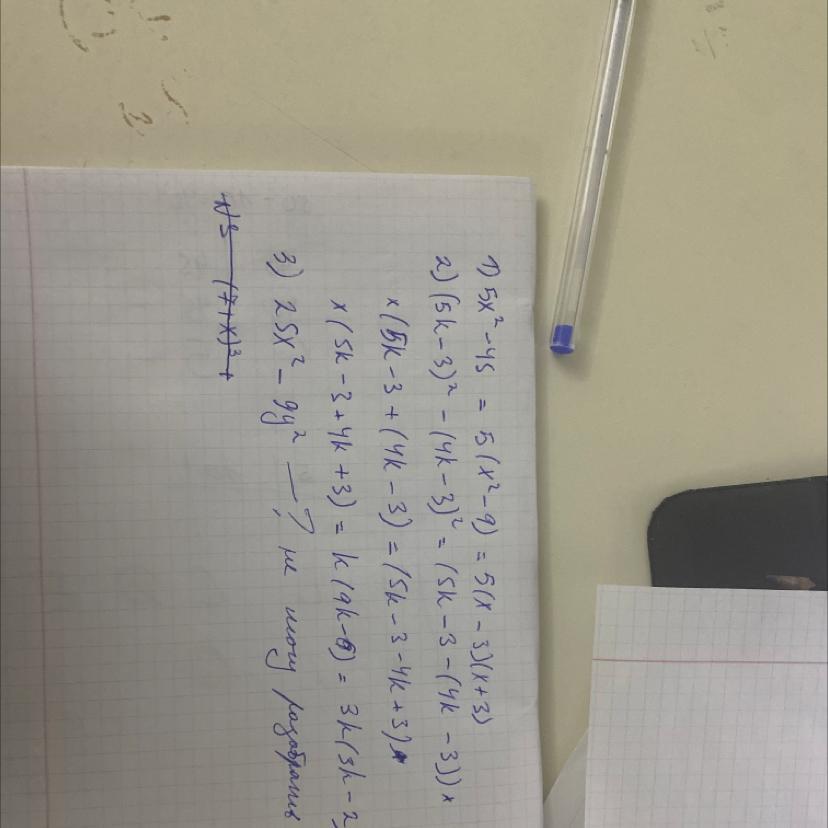 1) 5x² - 45 = 5(x² - 9) = 5(x - 3)(x + 3)
2) (5k - 3)² - (4k - 3)² = (5k - 3 - (4k - 3)) ×
× (5k - 3 + (4k - 3) = (5k - 3 - 4k + 3) ×
× (5k - 3 + 4k + 3) = k(9k - 6) = 3k(3k - 2)
3) 25x² - 9y² → , не могу разобрать
(7+x)³ +